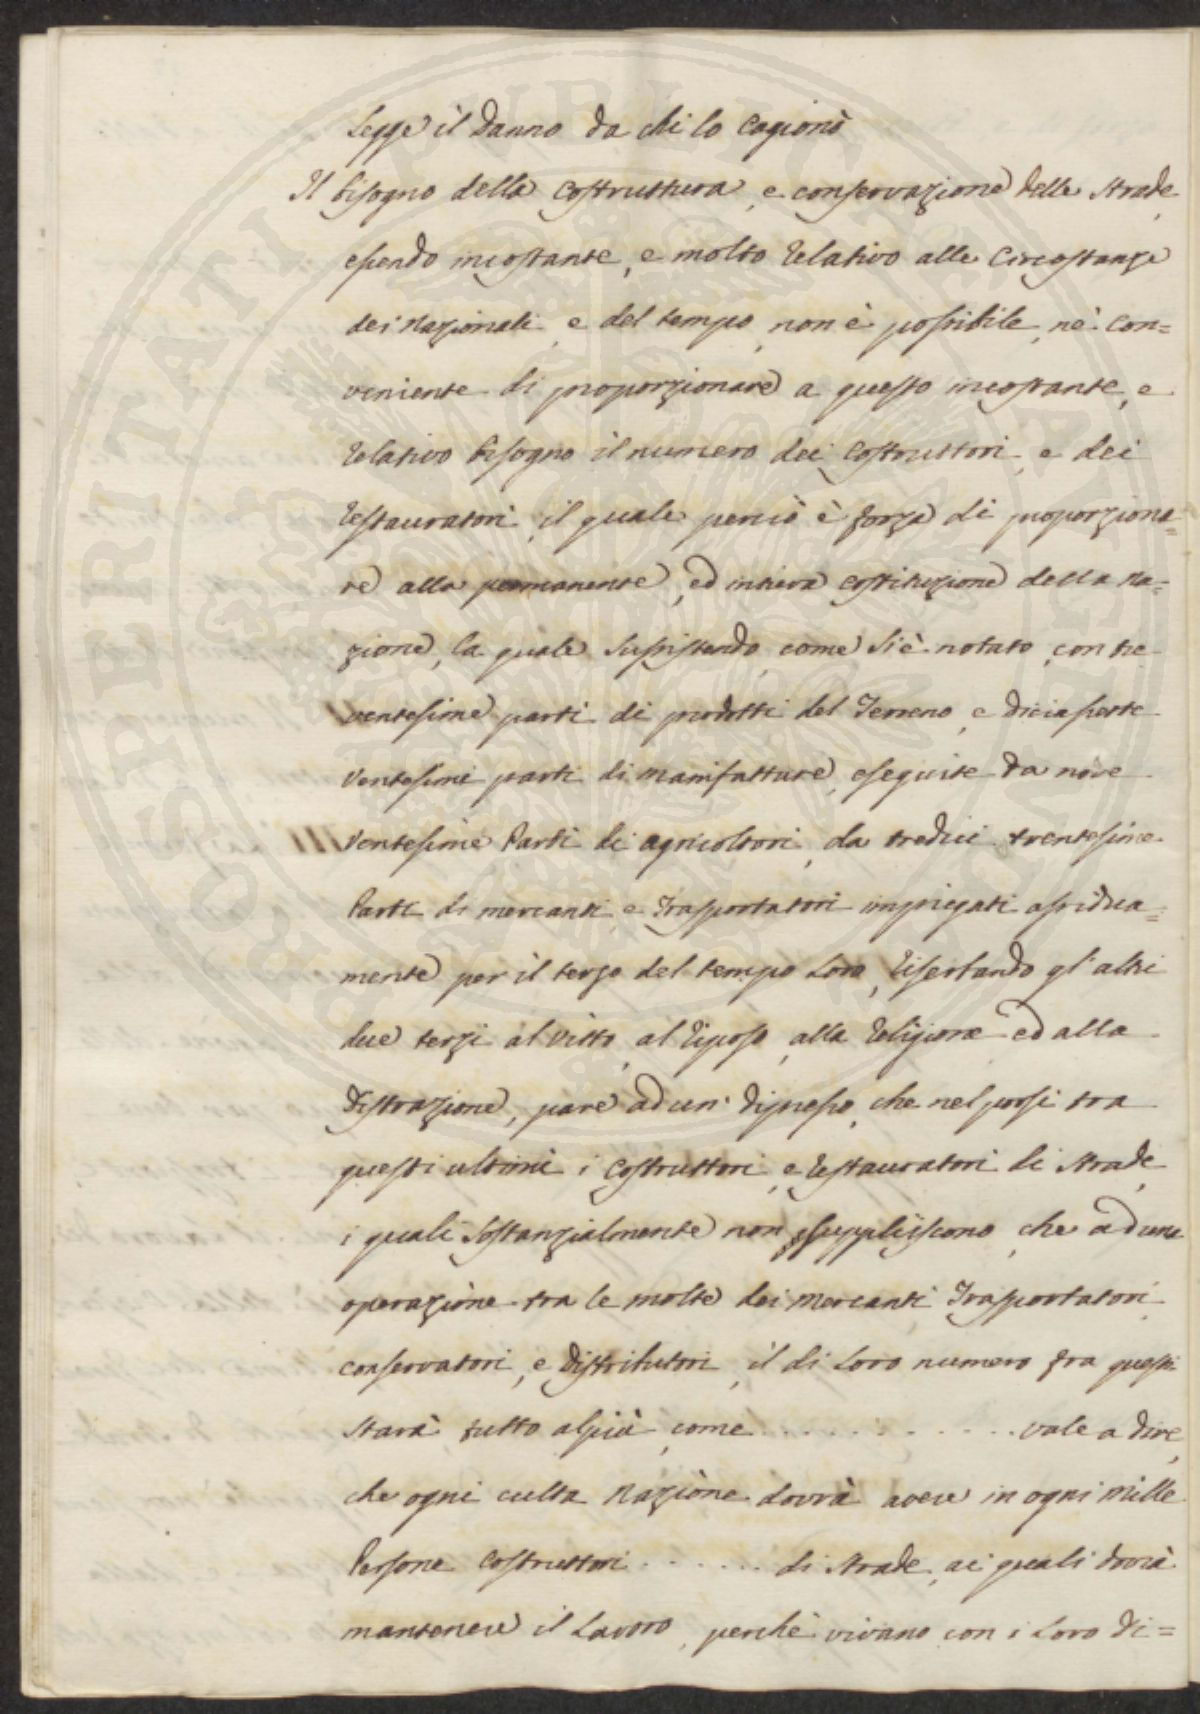 Legge il Danno da chi lo Cagionò
Il bisogno della Costruttura, e conservazione delle Strade,
essendo incostante, e molto relativo alle Circostanze
dei Nazionali, e del tempo, non è possibile, nè con=
veniente di proporzionare a questo incostante, e
relativo bisogno il numero dei Costruttori, e dei
restauratori, il quale perciò è forza di proporziona=
re alla permanente, ed intiera costituzione della Na=
zione, la quale sussistendo, come si è notato, con tre
ventesime parti di prodotti del Terreno, e diciasette
ventesimi parti di manifatture, eseguite da nove
ventesime Parti di agricoltori, da tredici trentesime
Parti di mercanti, e Trasportatori impiegati assidua=
mente per il terzo del tempo Loro, riserbando gl'altri
due terzi al Vitto, al riposo, alla religione ed alla
Distrazione, pare ad un' dipresso, che nel porsi tra
questi ultimi i Costruttori, e restauratori di Strade,
i quali sostanzialmente non suppliscono, che ad una
operazione tra le molte dei Mercanti, Trasportatori,
conservatori, e Distributori, il di Loro numero fra questi
starà tutto alpiù, come . . . . . . . . . . . vale a dire,
che ogni culta Nazione dovrà avere in ogni Mille
Persone Costruttori . . . . . . . di Strade, ai quali dovrà
mantenere il Lavoro, perchè vivano con i Loro di=
PROSPERITATI PVBLICAE AVGENDAE